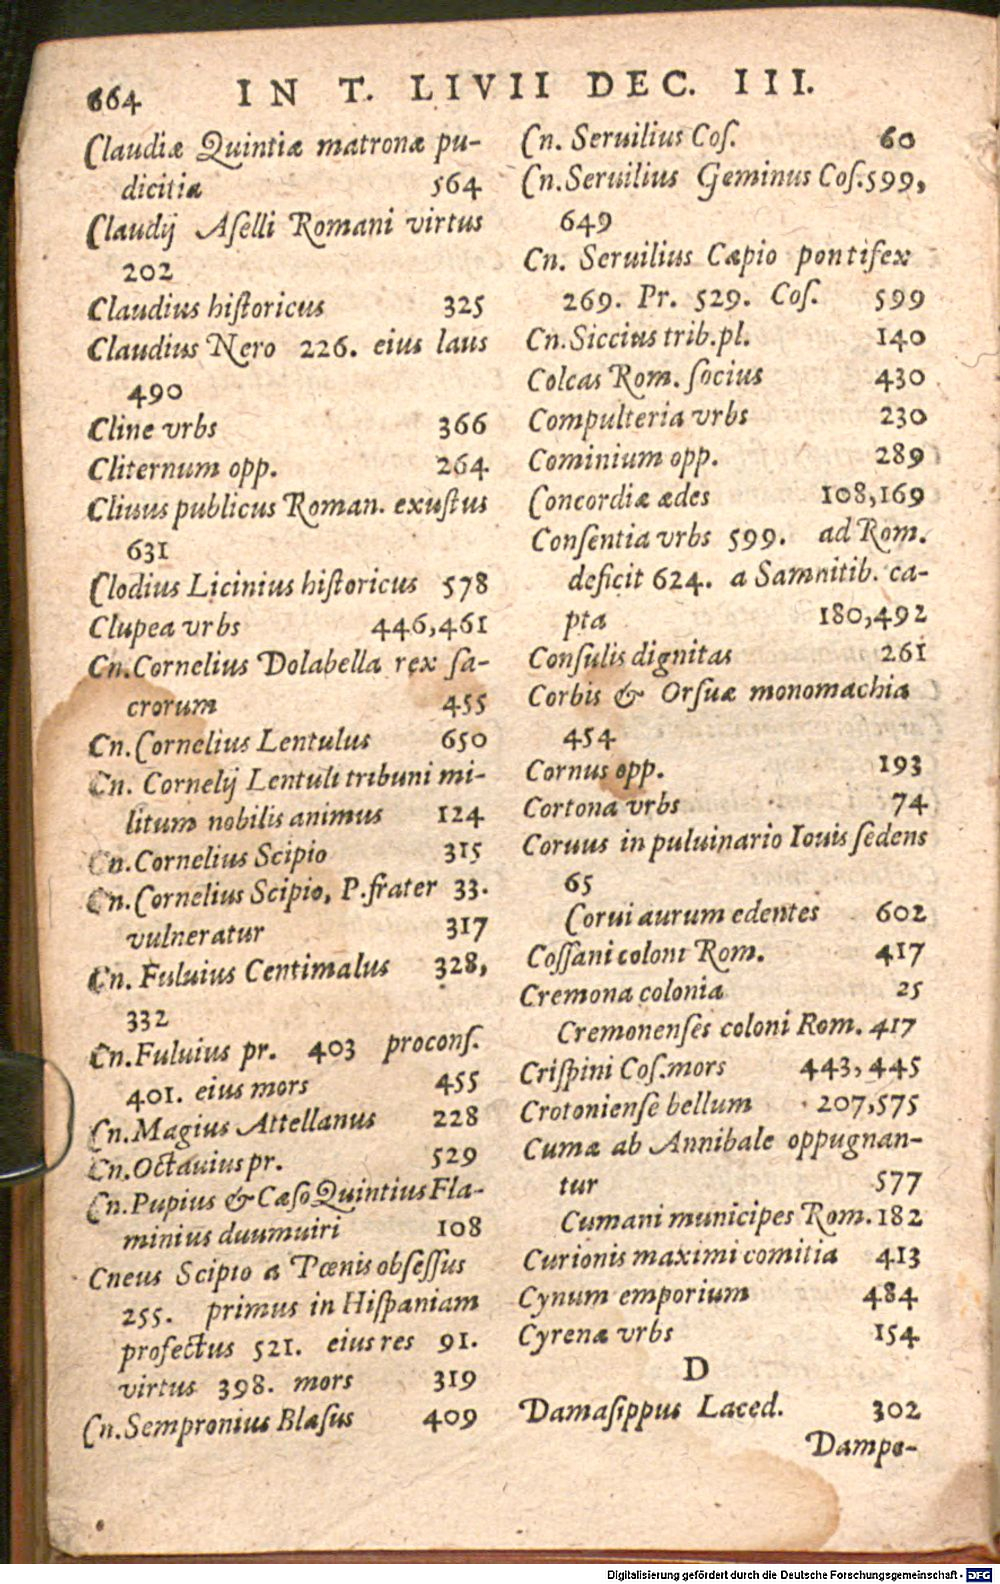 664 IN T. LIVII DEC. III.
Claudiæ Quintiæ matronæ pu-
dicitia 564
Claudij Aſelli Romani virtus
202
Claudius hiſtoricus 325
Claudius Nero 226. eius laus
490
Cline vrbs 366
Cliternum opp. 264
Cliuus publicus Roman. exuſtus
631
Clodius Licinius hiſtoricus 578
Clupea vrbs 446,461
Cn. Cornelius Dolabella rex ſa-
crorum 455
Cn. Cornelius Lentulus 650
Cn. Cornelij Lentuli tribuni mi-
litum nobilis animus 124
Cn. Cornelius Scipio 315
Cn. Cornelius Scipio, P. frater 33.
vulneratur 317
Cn. Fuluius Centimalus 328,
332
Cn. Fuluius pr. 403 proconſ.
401. eius mors 455
Cn. Magius Attellanus 228
Cn. Octauius pr. 529
Cn. Pupius & Cæſo Quintius Fla-
minius duumuiri 108
Cneus Scipio a Pœnis obſeſſus
255. primus in Hiſpaniam
profectus 521. eius res 91.
virtus 398. mors 319
Cn. Sempronius Blaſus 409
Cn. Seruilius Coſ. 60
Cn. Seruilius Geminus Coſ. 599,
649
Cn. Seruilius Cæpio pontifex
269. Pr. 529. Coſ. 599
Cn. Siccius trib. pl. 140
Colcas Rom. ſocius 430
Compulteria vrbs 230
Cominium opp. 289
Concordiæ ædes 108,169
Conſentia vrbs 599. ad Rom.
deficit 624. a Samnitib. ca-
pta 180,492
Conſulis dignitas 261
Corbis & Orſuæ monomachia
454
Cornus opp. 193
Cortona vrbs 74
Coruus in puluinario Iouis ſedens
65
Corui aurum edentes 602
Coſſani coloni Rom. 417
Cremona colonia 25
Cremonenſes coloni Rom. 417
Criſpini Coſ. mors 443,445
Crotonienſe bellum 207,575
Cumæ ab Annibale oppugnan-
tur 577
Cumani municipes Rom. 182
Curionis maximi comitia 413
Cynum emporium 484
Cyrenæ vrbs 154
D
Damaſippus Laced. 302
Dampo-
Digitalisierung gefördert durch die Deutsche Forschungsgemeinschaft - DFG